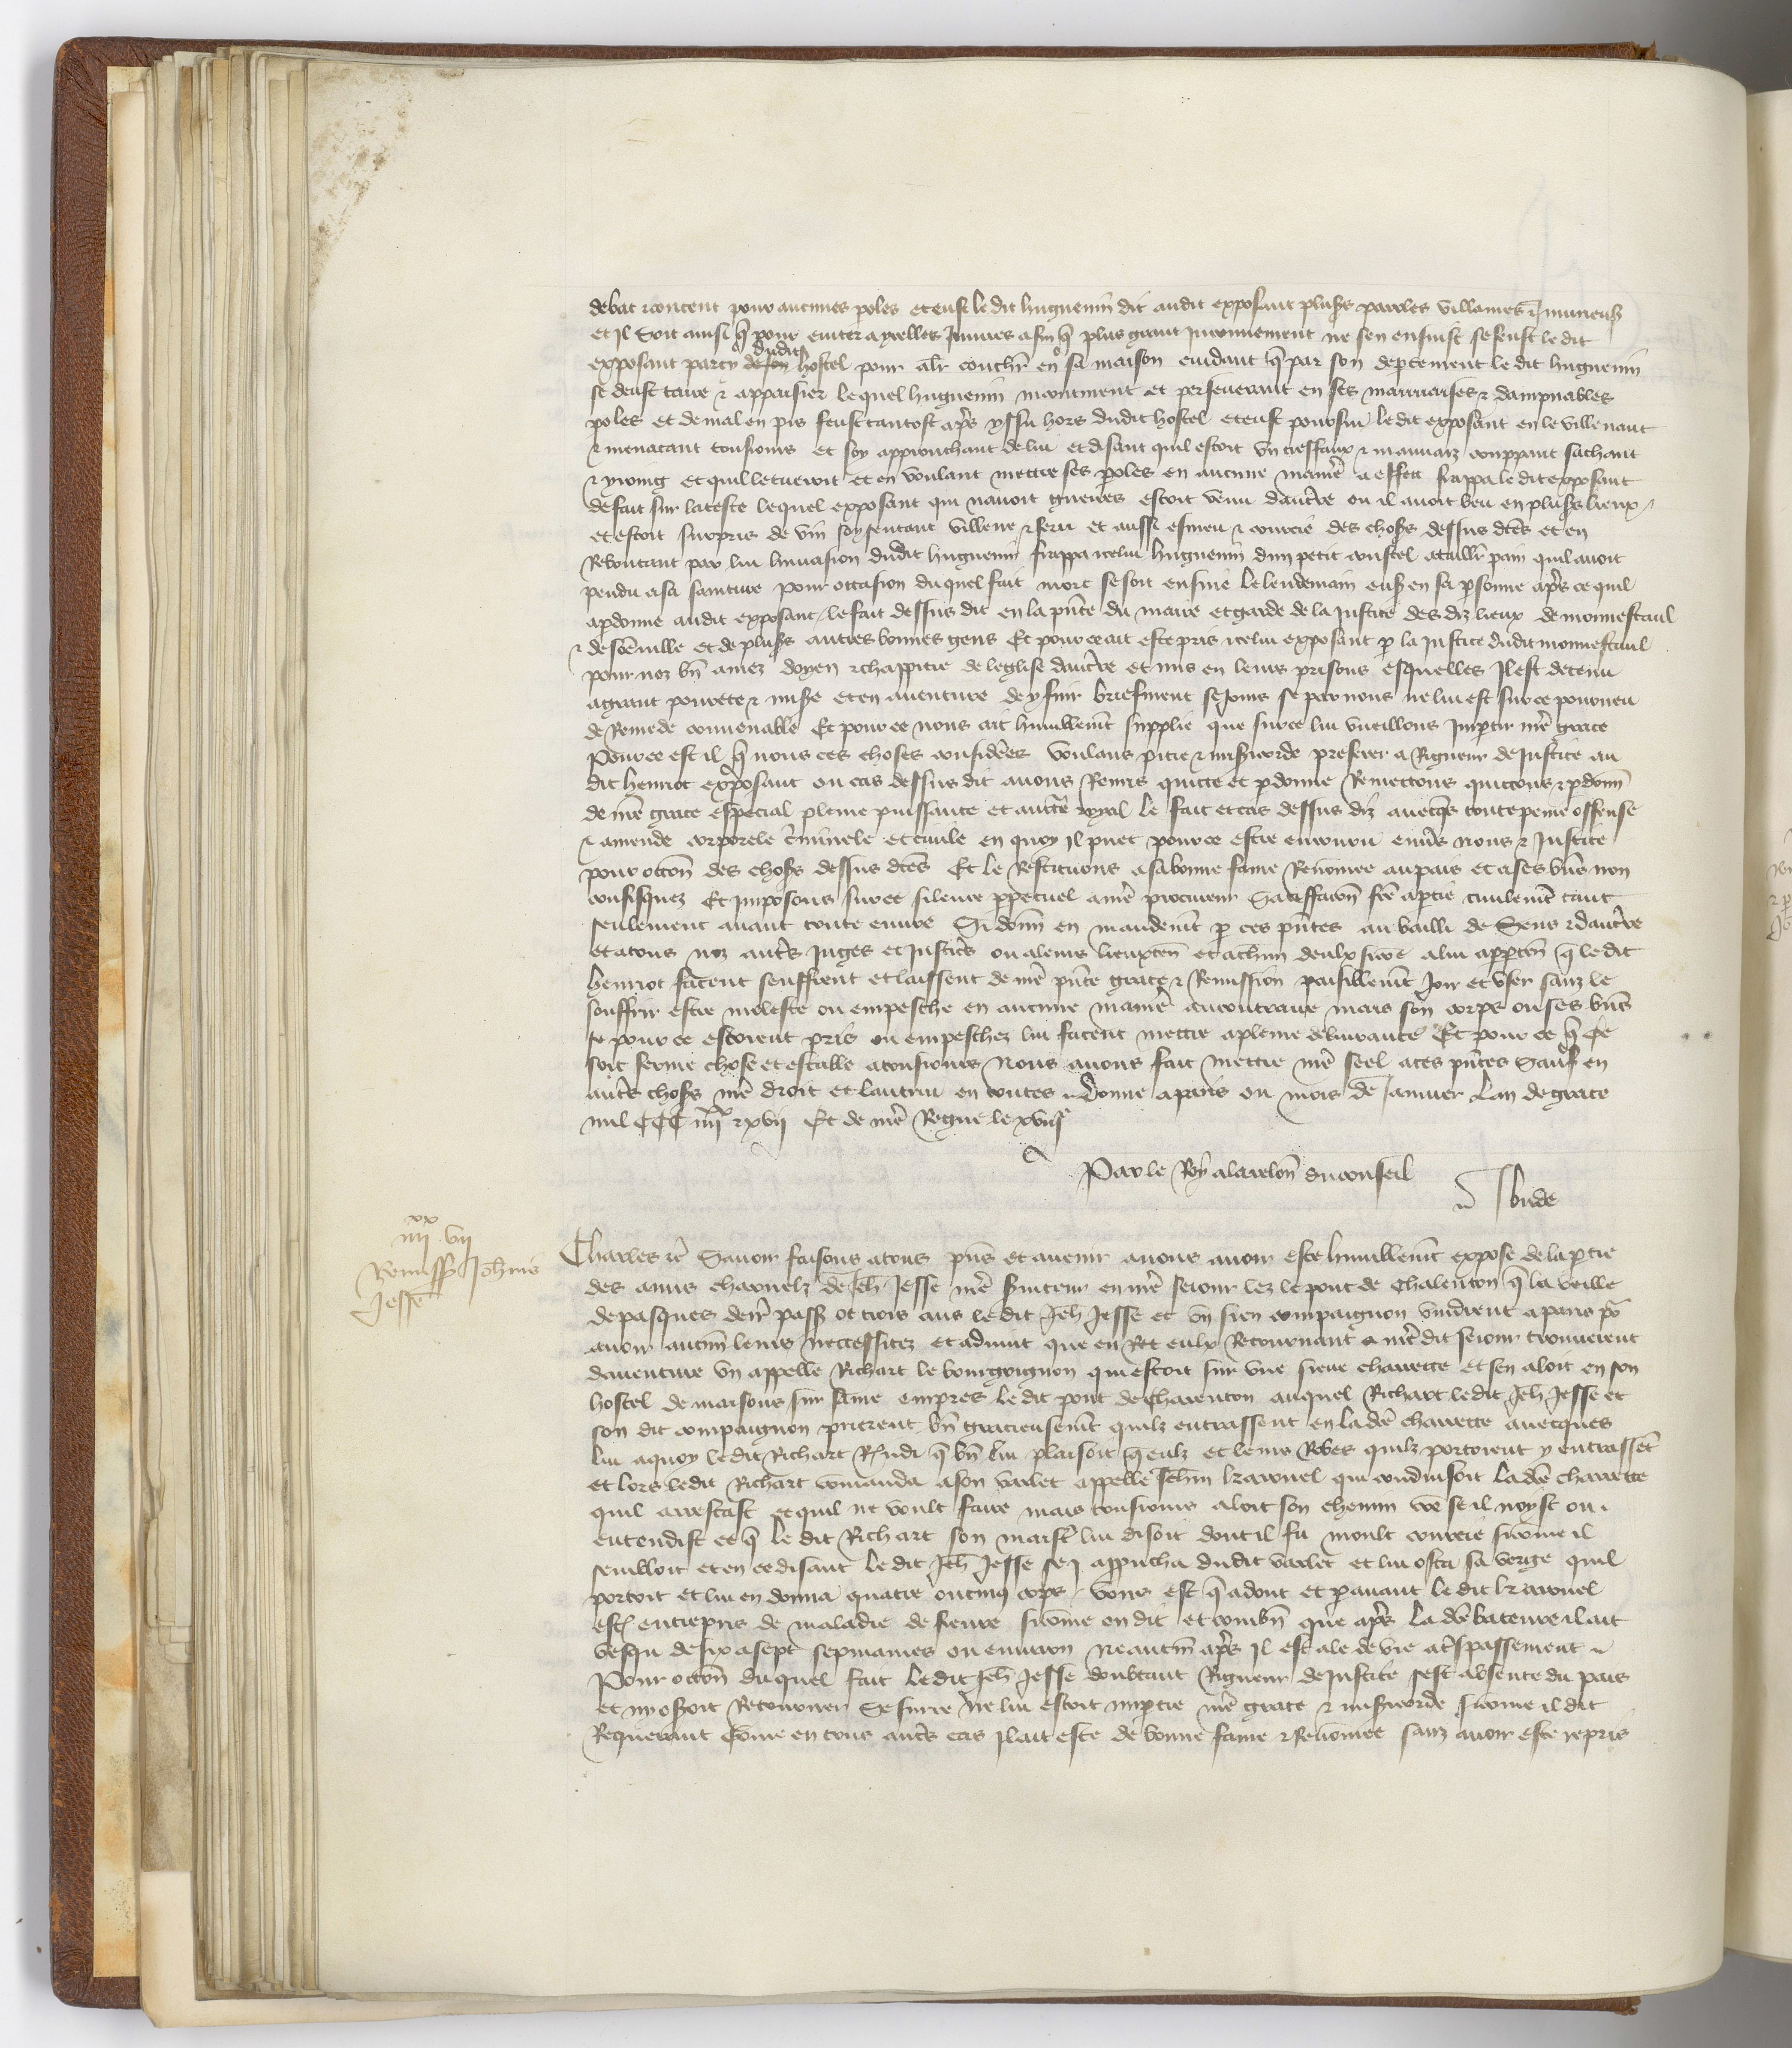 debat & content pour aucunes p̃oles et eust le dit huguenin dit audit exposant plus̃s paroles villaines & Iniurieuses
et Il soit ainsi q̃ pour euiter aycelles Iniures afin q̃ plus grant Inconuenient ne sen ensuist se feust le dit
exposant party dudit hostel pour al̃r couch̃r en sa maison cuidant q̃ par son deptement le dit huguenin
se deust taire & appaisier lequel huguenin continuant et perseuerant en ses mauuaises & dampnables
p̃oles et de mal en pis feust tantost ap̃s yssu hors dudit hostel et eust poursui le dit exposant en le villenant
& menacant tousiours et soy approuchant de lui et disant quil estoit vn tresfaux & mauuaiz
et quil le tueroit et en voulant mettre ses p̃oles en aucune manie᷑ a effect frappa le dit exposant
de fait sur la teste lequel exposant qui nauoit gueres estoit venu daucẽre ou il auoit beu en plus̃s lieux
et estoit surpris de vin soy sentant villene & feru et aussi esmeu & courcie des choses dessus dc̃es et en
Reboutant par lui linuasion dudit huguenin frappa icelui huguenin dun petit coustel a taill̃r pain quil auoit
pendu a sa sainture pour occasion duquel fait mort se soit ensuie lelendemain en sa p̃sonne ap̃s ce quil
a pdonne audit exposant le fait dessus dit en la pñce du maire et garde de la Justice des diz lieux de monnestaul
& de et de plus̃s autres bonnes gens Et pour ce ait este pris icelui exposant p̃ la Justice dudit monnestaul
pour noz bñ amez doyen & chappitre de leglise daucẽre et mis en leurs prisons esquelles Il est detenu
a grant pourete & mis̃e et en auenture de y finir briefment se Jours se par nous ne lui est sur ce pourueu
de Remede conuenable Et pour ce nous ait humblemẽt supplie que sur ce lui vueillons Imp̃tir nr̃e grace
Pour ce est il q̃ nous ces choses considerees voulans pitie & mis̃icorde preferer a Rigueur de Justice au
dit henriot exposant ou cas dessus dit auons Remis quictie et p̃donne Remettons quictons & p̃donn̄
de nr̃e grace especial pleine puissance et aucte᷑ royal le fait et cas dessus diz auecq̃s toute peine offense
& amende corporele c̃minele et ciuile en quoy Il puet pour ce estre encouru enũs nous & Justice
pour occõn des choses dessus dc̃es Et le Restituons a sa bonne fame Renõmee au pais et a ses bñs non
confisquez Et Imposons sur ce silence p̃petuel a nr̃e procureur Satisfaccõn fc̃e a ptie ciuilemẽt tant
seulement auant toute euure Si donñ en mandemẽt p̃ ces pñtes au bailli de Sens & daucẽre
et a tous noz autr̃s Juges et Justic̃rs ou a leurs lieuxteñ et a ch̃un deulx sicõe a lui app̃teñ q̃ le dit
henriot facent seuffrent et laissent de nr̃e pñte grace & Remission paisiblemẽt Joir et vser sanz le
souffrir estre moleste ou empesche en aucune manie᷑ au contraire mais son corps ou ses bñs
se pour ce estoient pris ou empeschez lui facent mettre a pleine deliurance Et pour ce q̃ ce
soit ferme chose et estable a tousiours Nous auons fait mettre nr̃e seel a ces pñtes Sauf en
autr̃s choses nr̃e droit et lautrui en toutes Donne a paris ou mois de Januier Lan de grace
mil CCC iiijˣˣ & xvij Et de nr̃e Regne le xviijᵉ
Par le Roy a la relacõn du conseil
J bude
xx
iiij vij
Remiss̃ Joh̃nis
Jesse
Charles &c̃ Sauoir faisons a tous pñs et auenir a nous auoir este humblemẽt expose de la ptie
des amis charnelz de Jeh̃ Jesse nr̃e s̃uiteur en nr̃e seiour lez le pont de Chalenton q̃ la veille
de pasques derr̃ pass̃ ot trois ans le dit Jeh̃ Jesse et vn sien compaignon vindrent a paris po᷑
auoir aucuñ leurs neccessitez et aduint que en eulx Retournant a nr̃e dit seiour trouuerent
dauenture vn appelle Richart le bourgoignon qui estoit sur vne sienne charrette et sen aloit en son
hostel de maisons sur saine empres le dit pont de charenton auquel Richart le dit Jeh̃ Jesse et
son dit compaignon prierent bñ gracieusemẽt quilz entrassent en lad̃e charrette auecques
lui a quoy le dit Richart Rñdi q̃ bñ lui plaisoit q̃ eulz et leurs Robes quilz portoient y entrassẽt
et lors le dit Richart cõmanda a son varlet appelle Jeh̃nin qui conduisoit la dc̃e charrette
quil arrestast et quil ne voult faire mais tousiours aloit son chemin cõe se il noyst ou
entendist ce q̃ le dit Richart son maistr̃ lui disoit dont il fu moult courcie sicõme il
sembloit et en ce disant le dit Jeh̃ Jesse se approucha dudit varlet et lui osta sa verge quil
portoit et lui en donna quatre ou cinq cops vrais est q̃ adont et p auant le dit
est entrepris de maladie de fieure sicõme on dit et combñ que ap̃s la dc̃e bateure il ait
vesqu de six a sept sepmaines ou enuiron neantm̃ ap̃s Il est ale de vie a tr̃spassement
Pour occõn duquel fait le dit Jeh̃ Jesse doubtant Rigueur de Justice sest absente du pais
et ny oseroit Retourner se sur ce ne lui estoit Imp̃tie nr̃e grace & mis̃icorde sicõme il dit
Requerant Cõme en tous autr̃s cas Il ait este de bonne fame & Renõmee sanz auoir este repris